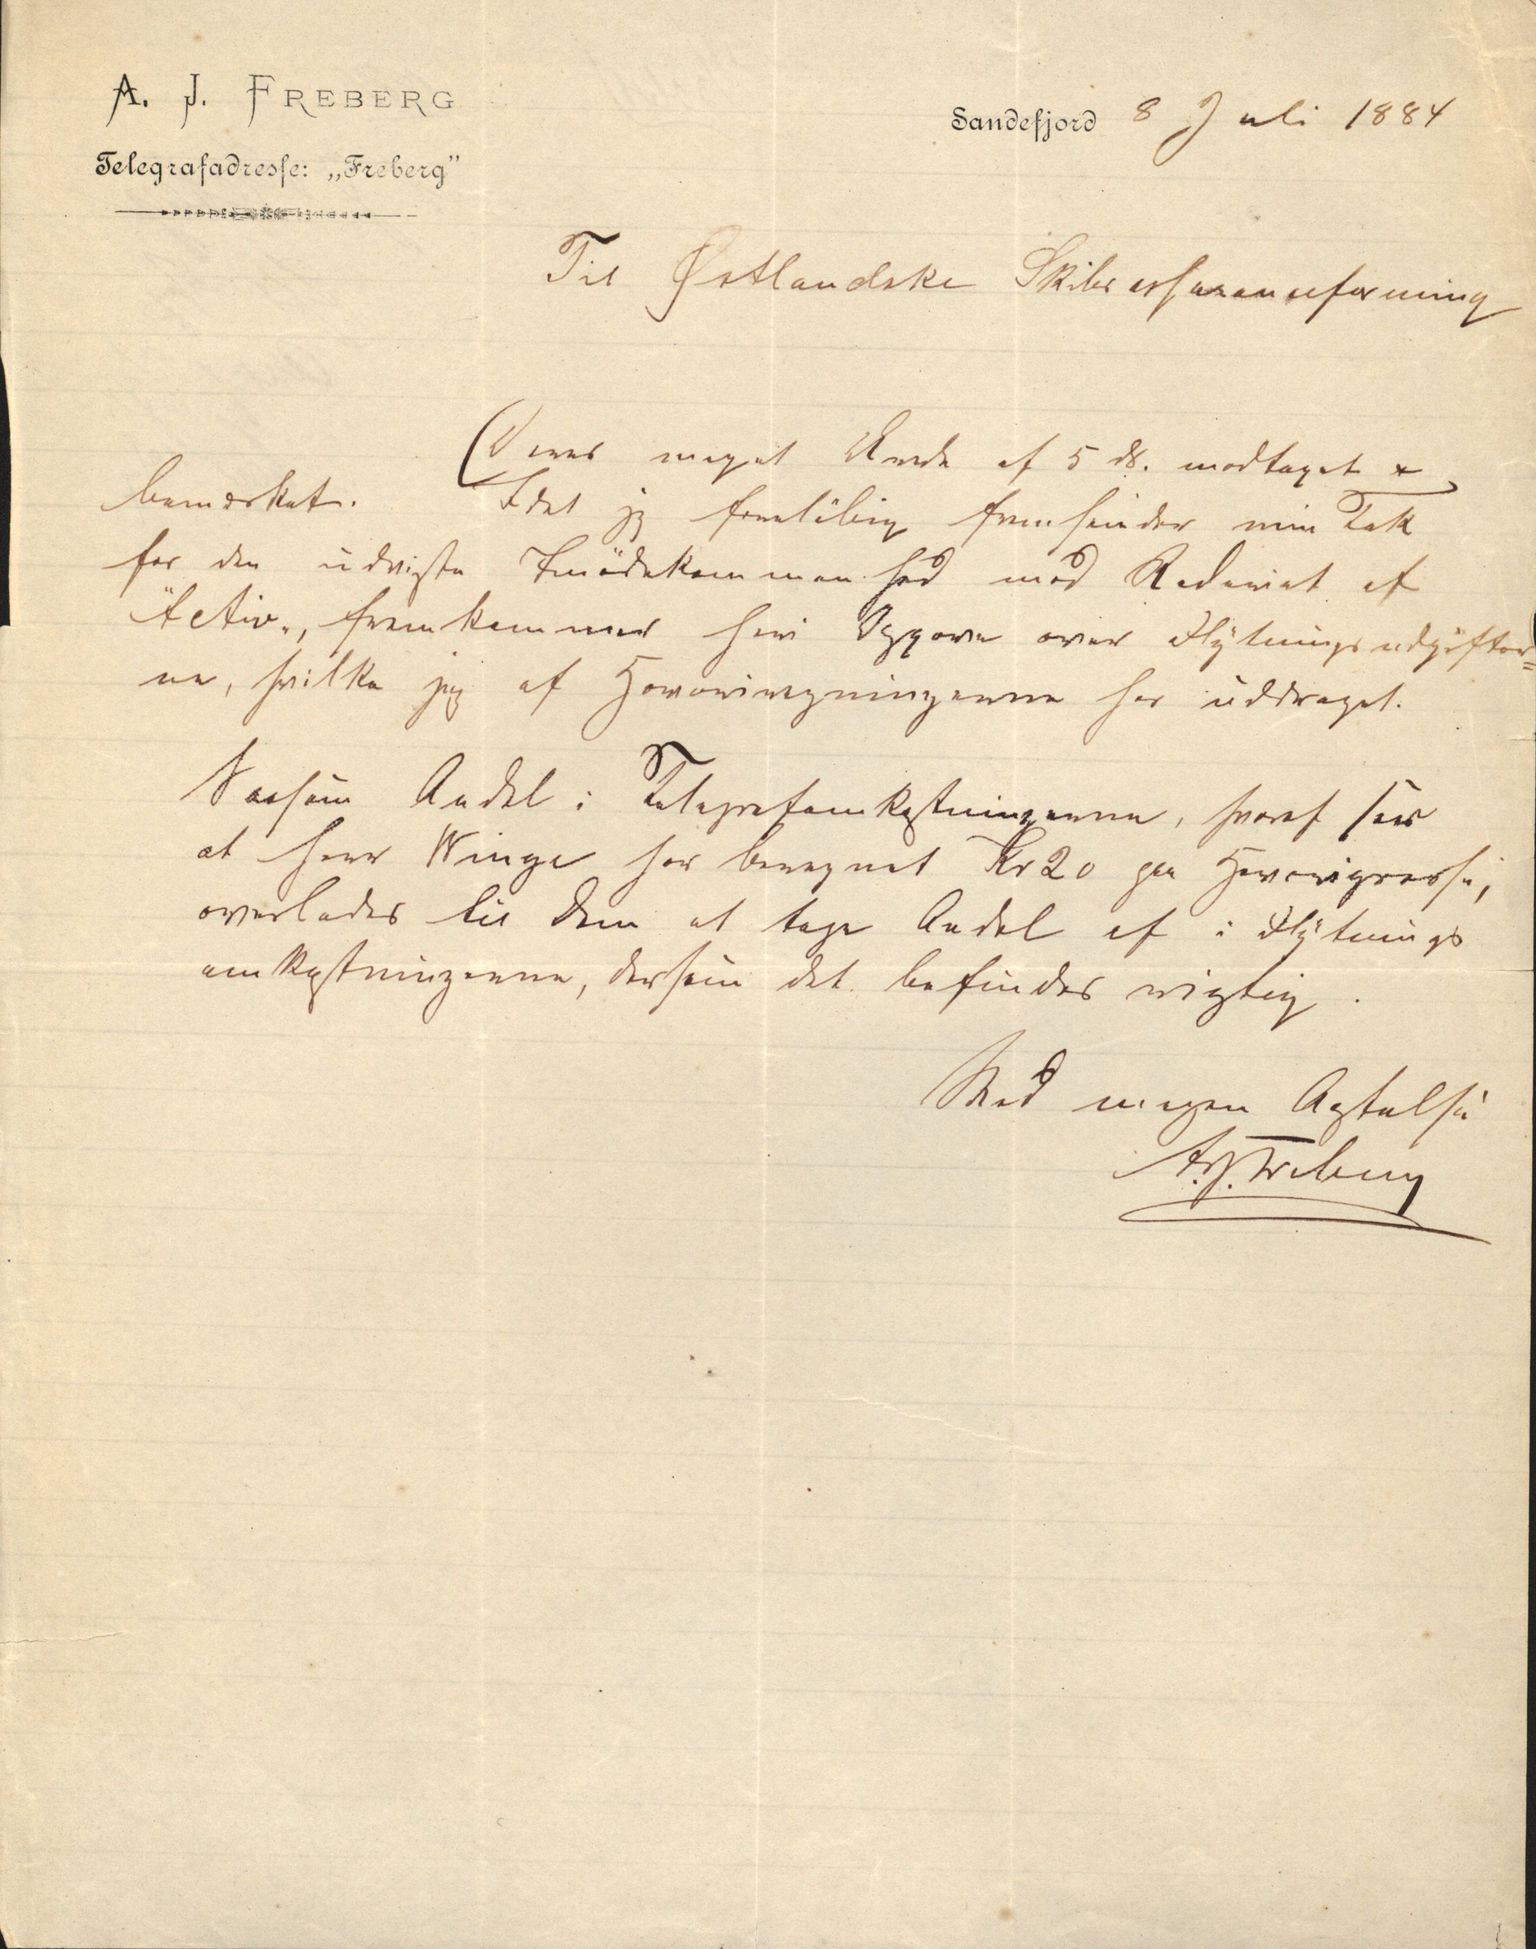 A. J. FREBERG
Telegrafadresse: „Freberg"
Sandefjord 8 Juli 1884
Til Østlandske Skibsassuranceforening
Deres meget Ærede af 5 ds. modtaget &
bemærket. Idet jeg foreløbig fremsender min Tak
for den udviste Imødekommenhed mod Rederiet af
"Activ", fremkommer hervi Opgave over Flytningsudgifter=
ne, hvilke jeg af Havariregningerne har uddraget.
Saasom Andel i Telegrafomkostningerne, hvoraf sees
at Herr Winge har beregnet Kr 20 paa Havarigrosse,
overlades til Dem at tage Andel af i Flytnings
omkostningerne, dersom det befindes rigtig.
Med megen Agtelse
A. J. Freberg